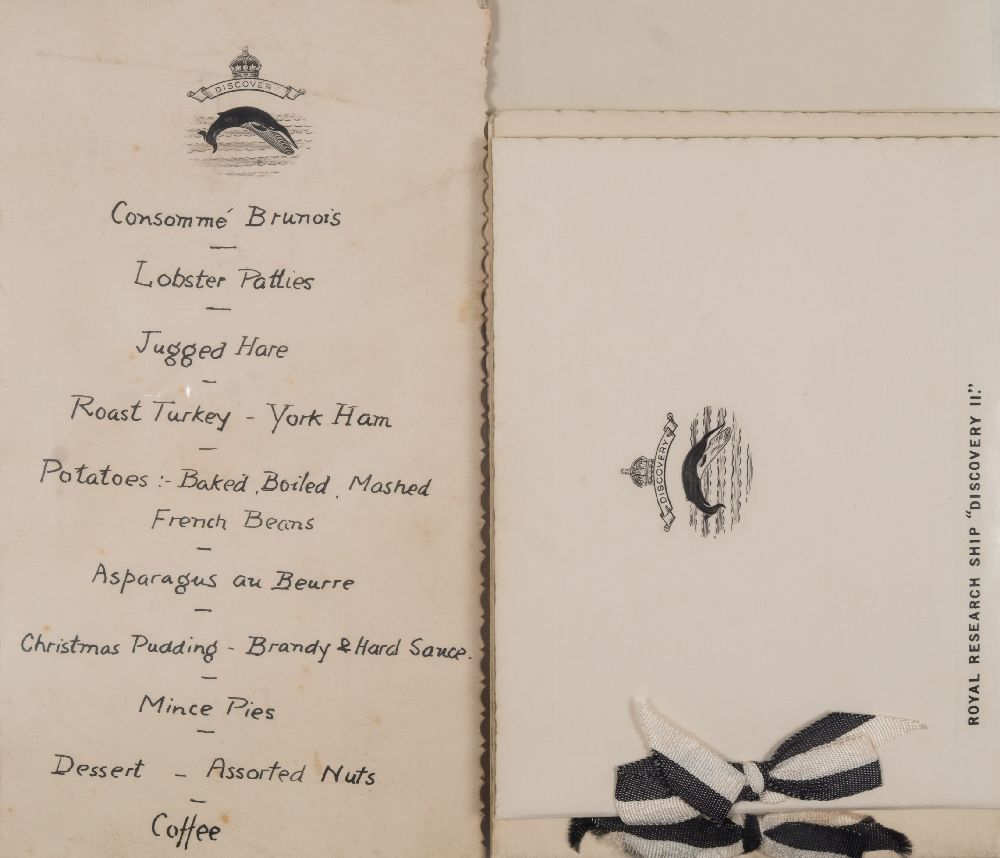 DISCOVERY
Consommé Brunois
Lobster Patties
Jugged Hare
Roast Turkey - York Ham
Potatoes :- Baked, Boiled, Mashed
French Beans
Asparagus au Beurre
Christmas Pudding - Brandy & Hard Sauce.
Mince Pies
Dessert - Assorted Nuts
Coffee
DISCOVERY
ROYAL RESEARCH SHIP "DISCOVERY II."